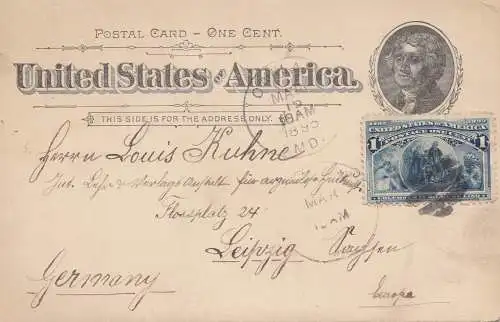 POSTAL CARD – ONE CENT.
United States of America.
THIS SIDE IS FOR THE ADDRESS ONLY.
MAR
15
10AM
1893
MD.
UNITED STATES OF AMERICA
1 1
Herrn Louis Kuhne
Int. Lehr- & Verlags Anstalt für
Flossplatz 24
MAR
10AM
Leipzig Sachsen
Germany
Europa